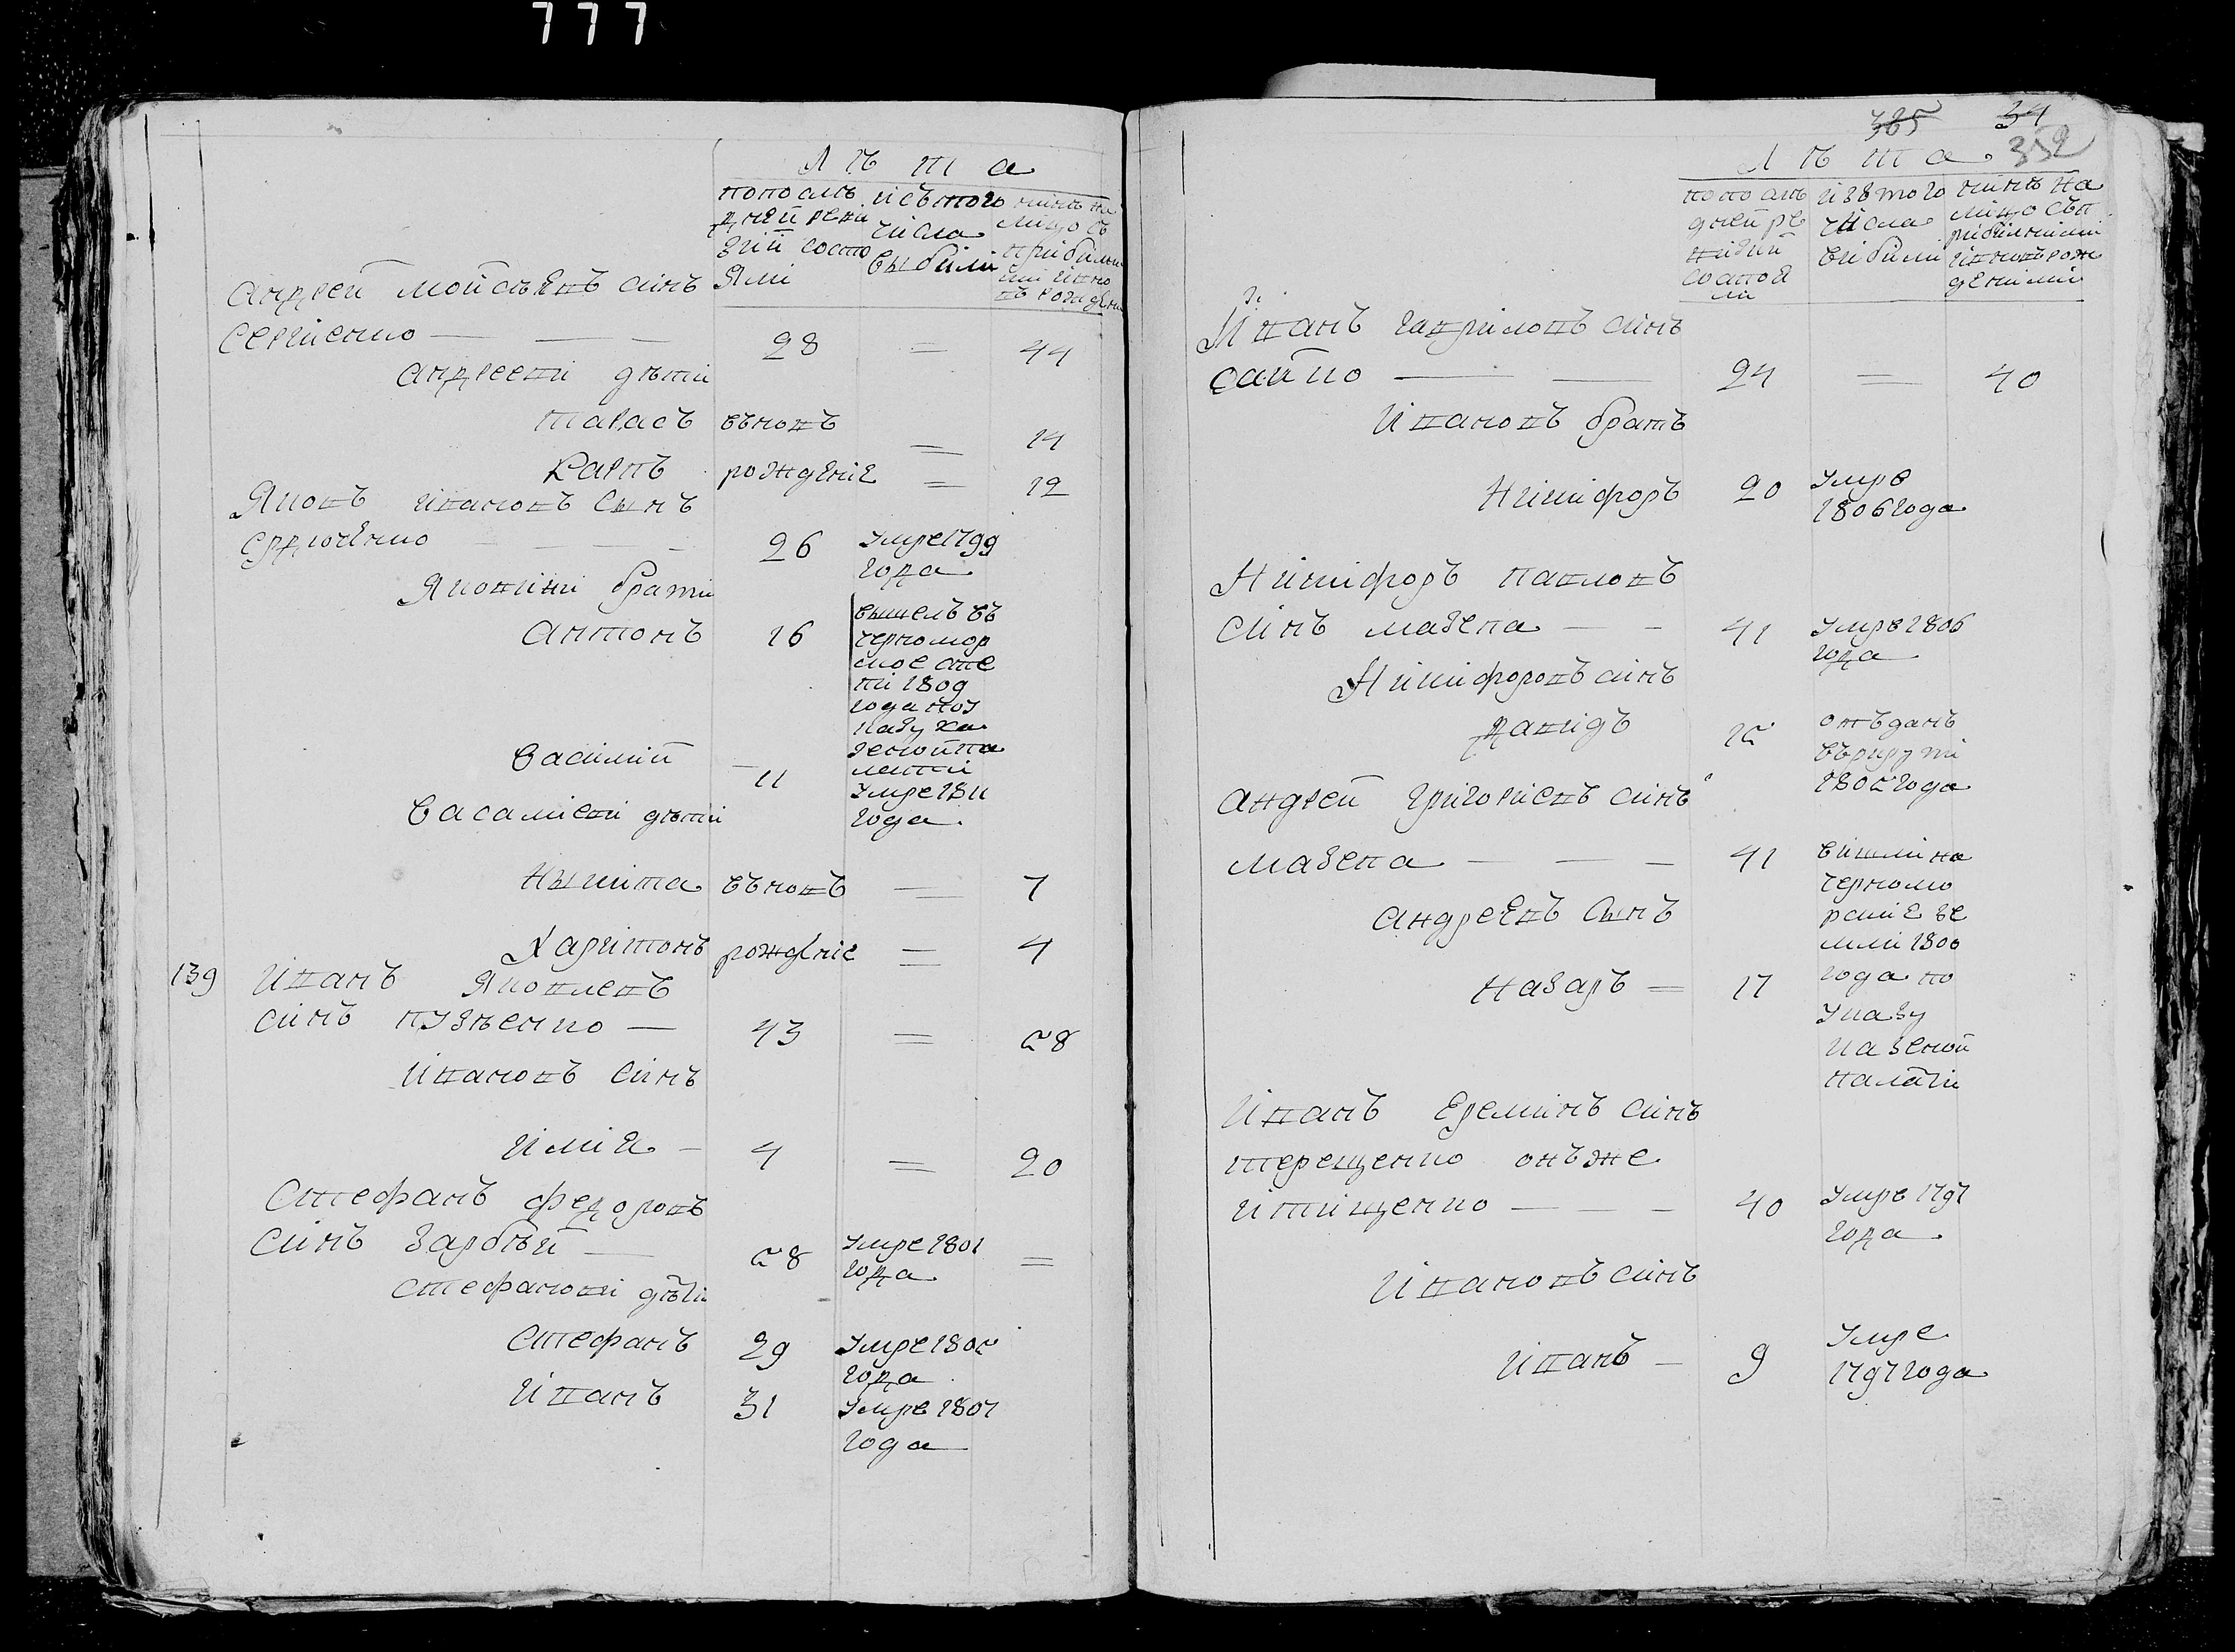 777
Лѣта
попослѣ
дней реви
зіи состо
яли
исътого
числа
выбили
нинѣ на
лицо съ
прибилы
ми ивно
въ рожден
андрей мойсѣевъ синъ
Сергиенко — — — 28 = 44
андрееви дѣти
тарасъ въновъ = 14
Карпъ рожденіе = 12
Яковъ ивановъ Сынъ
Сердюченко — — — 26 Умре 1799
года
Яковини брати
антонъ 16 вышелъ въ
черномор
ское
1809
года поу
казу ка
зеной па
латы
Василий — 11 Умре 1811
года
Васалиеви дѣти
Никита въновъ — 7
Харитонъ рожденіе = 4
139 иванъ Яковлевъ
синъ пузѣенко — 43 = 58
ивановъ Синъ
илия — 4 = 20
Стефанъ федоровъ
Синъ Зарбѣй — 58 Умре 1801
года =
стефанови дѣти
стефанъ 29 Умре 1805
года
иванъ 31 Умре 1807
года
385 34
352
Лѣта
попослѣ
дней ре
визий
состоя
ли
изътого
числа
вибили
нинѣ на
лицо съп
рибилими
ивновърож
деними
Иванъ гавриловъ синъ
сайко — — 24 = 40
ивановъ братъ
Никифоръ 20 Умре
1806 года
Никифоръ павловъ
синъ мазепа — — 41 Умре 1806
года
Никифоровъ синъ
давидъ 15 отъданъ
върекрути
1805 года
андрей григориевъ синъ
мазепа — — — 41 вишли на
черномо
рские зе
мли 1800
года по
указу
казеной
палати
андреевъ Сынъ
назаръ = 17
иванъ Ереминъ синъ
терещенко онъже
итищенко — — — 40 Умре 1797
года
ивановъ синъ
иванъ — 9 Умре
1797 года